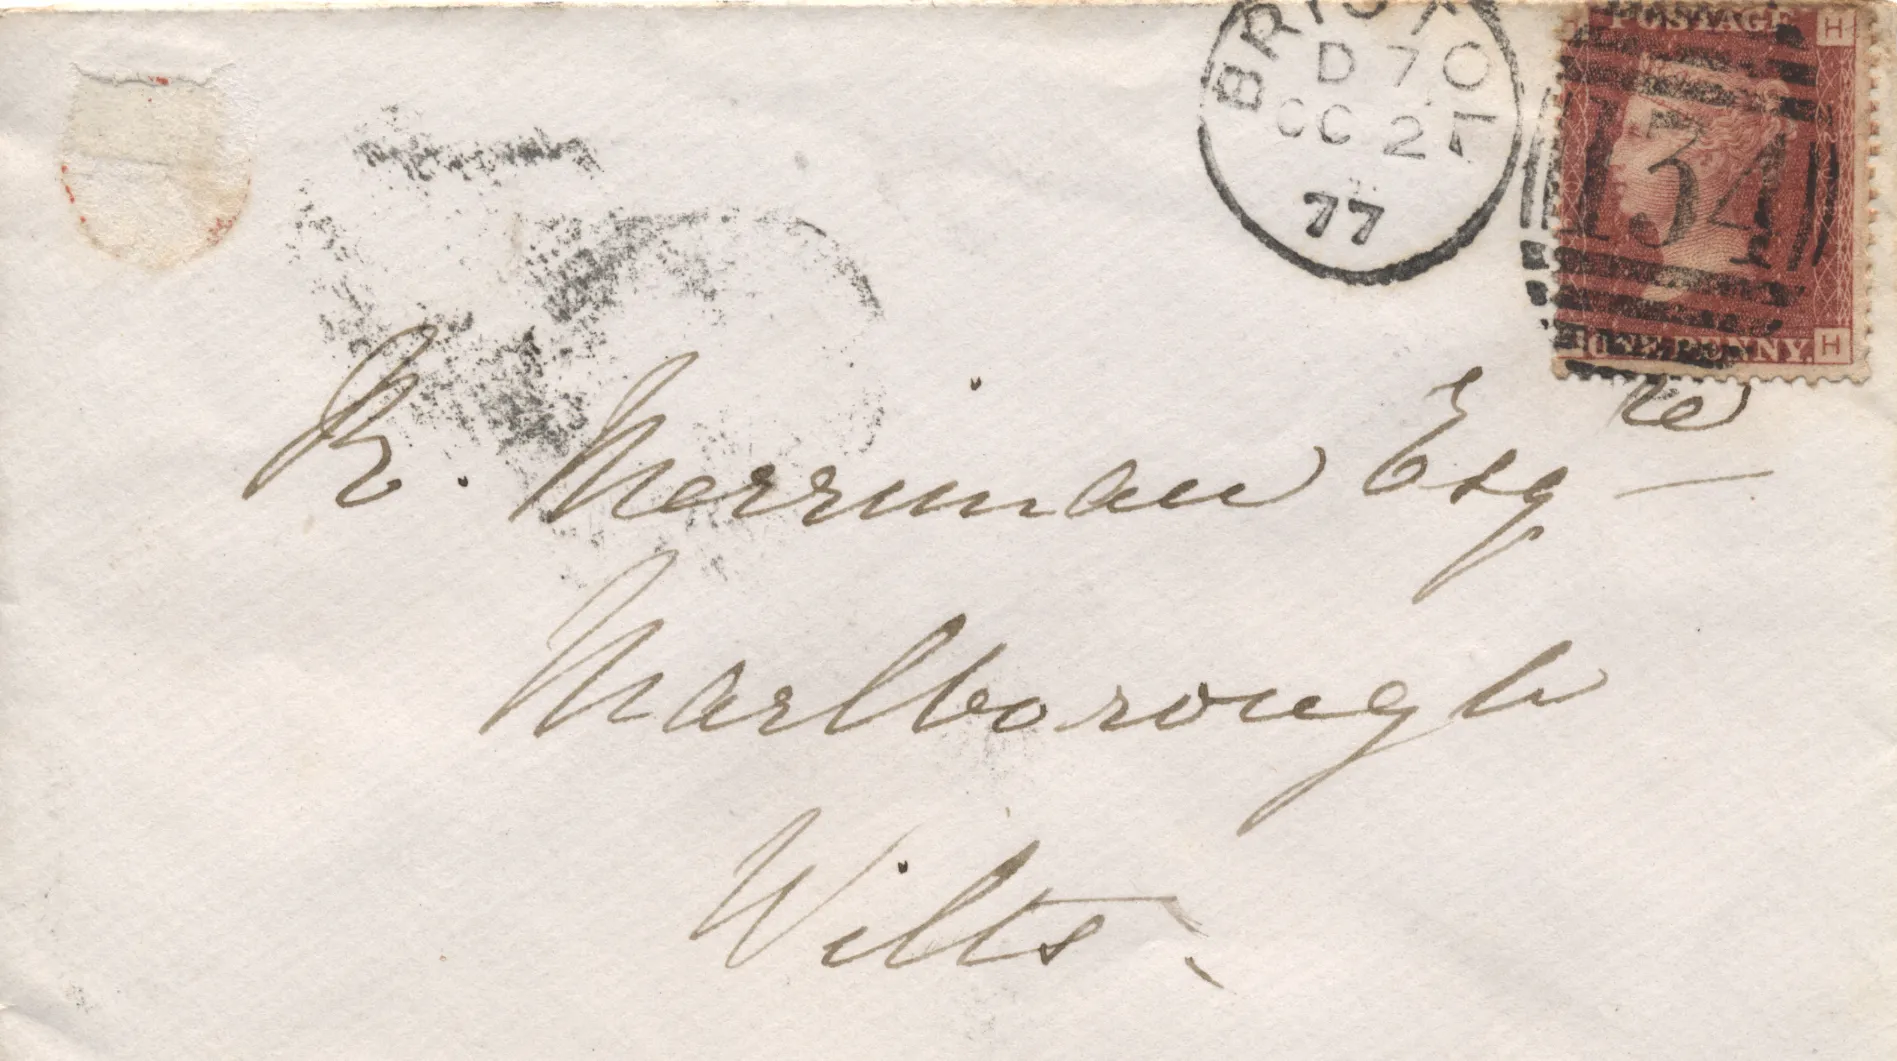 BRISTO
D 70
OC 27
77
POSTAGE
H
134
ONE PENNY.
H
R. Merriman Esqre
Marlborough
Wilts